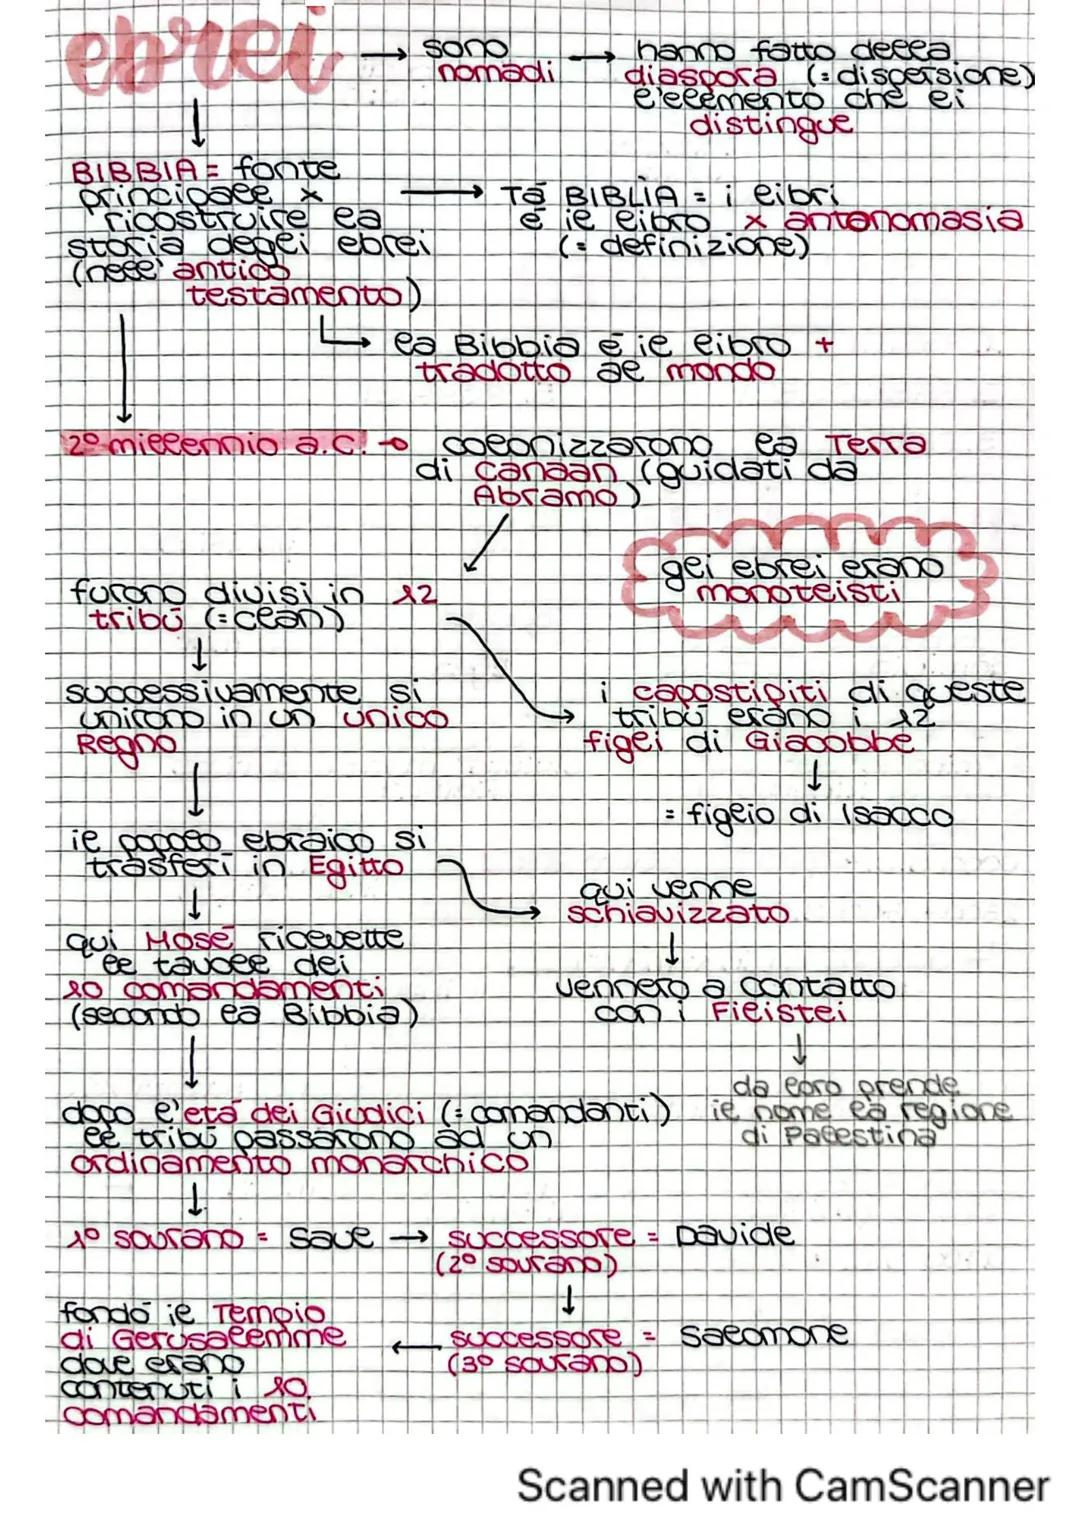 ebrei → sono nomadi → hanno fatto della
diaspora (= dispersione)
l'elemento che li
distingue
BIBBIA = fonte
principale x
ricostruire la
storia degli ebrei
(nell'antico
testamento)
→ Tá BIBLÌA = i libri
é il libro x antonomasia
(= definizione)
la Bibbia é il libro +
tradotto al mondo
2° millennio a.C. → colonizzarono la Terra
di Canaan (guidati da
Abramo)
gli ebrei erano
monoteisti
furono divisi in 12
tribú (= clan)
successivamente si
unirono in un unico
Regno
i capostipiti di queste
tribú erano i 12
figli di Giacobbe
= figlio di Isacco
il popolo ebraico si
trasferí in Egitto
qui venne
schiavizzato
qui Mosé ricevette
le tavole dei
10 comandamenti
(secondo la Bibbia)
vennero a contatto
con i Filistei
da loro prende
il nome la regione
di Palestina
dopo l'etá dei Giudici (= comandanti)
le tribú passarono ad un
ordinamento monarchico
1° sovrano = Saul → successore = Davide
(2° sovrano)
successore = Salomone
(3° sovrano)
fondó il Tempio
di Gerusalemme
dove erano
contenuti i 10
comandamenti
Scanned with CamScanner